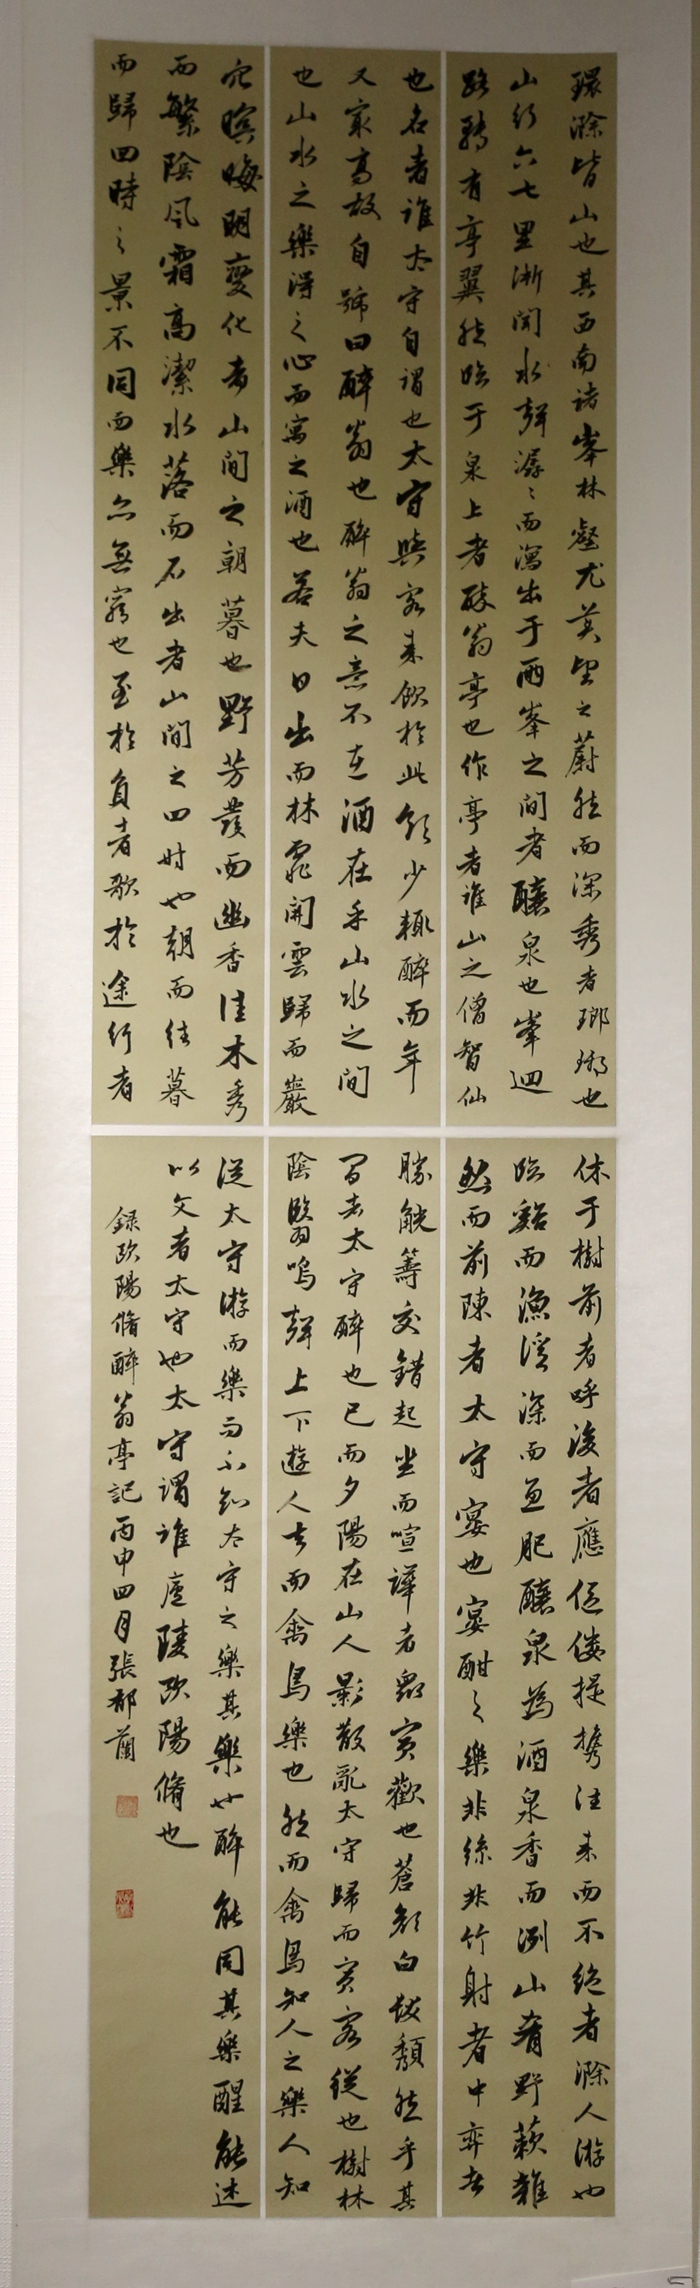 環滁皆山也其西南諸峯林壑尤美望之蔚然而深秀者瑯琊也
山行六七里漸聞水聲潺〻而瀉出于兩峯之間者釀泉也峯迴
路轉有亭翼然臨于泉上者醉翁亭也作亭者誰山之僧智仙
也名者誰太守自謂也太守與客來飲於此飲少輒醉而年
又最高故自號曰醉翁也醉翁之意不在酒在乎山水之間
也山水之樂得之心而寓之酒也若夫日出而林霏開雲歸而巖
穴暝晦明變化者山間之朝暮也野芳發而幽香佳木秀
而繁陰風霜高潔水落而石出者山間之四時也朝而往暮
而歸四時之景不同而樂亦無窮也至於負者歌於途行者
休于樹前者呼後者應傴僂提攜往來而不絕者滁人游也
臨谿而漁溪深而魚肥釀泉為酒泉香而洌山肴野蔌雜
然而前陳者太守宴也宴酣之樂非絲非竹射者中弈者
勝觥籌交錯起坐而喧譁者眾賓歡也蒼顏白髮頹然乎其
間者太守醉也已而夕陽在山人影散亂太守歸而賓客從也樹林
陰翳鳴聲上下遊人去而禽鳥樂也然而禽鳥知人之樂人知
從太守游而樂而不知太守之樂其樂也醉能同其樂醒能述
以文者太守也太守謂誰廬陵歐陽脩也
録歐陽脩醉翁亭記丙申四月張郁蘭